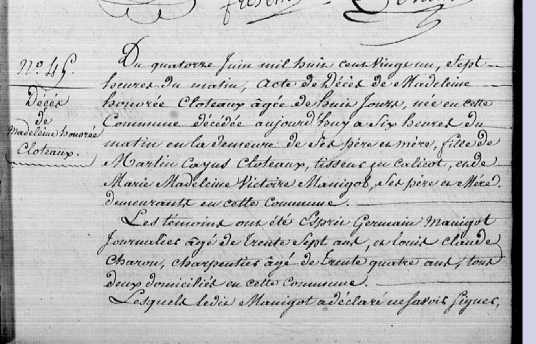 N.º 45.
Décès
de
Madeleine honorée
Cloteaux.
Du quatorze Juin mil huit cent vingt un, Sept
heures du matin, Acte de Décès de Madeleine
honorée Cloteaux âgée de huit Jours, née en cette
Commune décédée aujourd'huy a Six heures du
matin en la demeure de Ses père et mère, fille de
Martin Cayus Cloteaux, tisseur en calicot, et de
Marie Madeleine Victoire Manigot, Ses père et Mère
demeurants en cette Commune.
Les témoins ont été Esprit Germain Manigot
Journalier âgé de trente Sept ans, et Louis Claude
Charon, charpentier âgé de trente quatre ans, tous
deux domiciliés en cette Commune.
Lesquels ledit Manigot a déclaré ne savoir Signer,